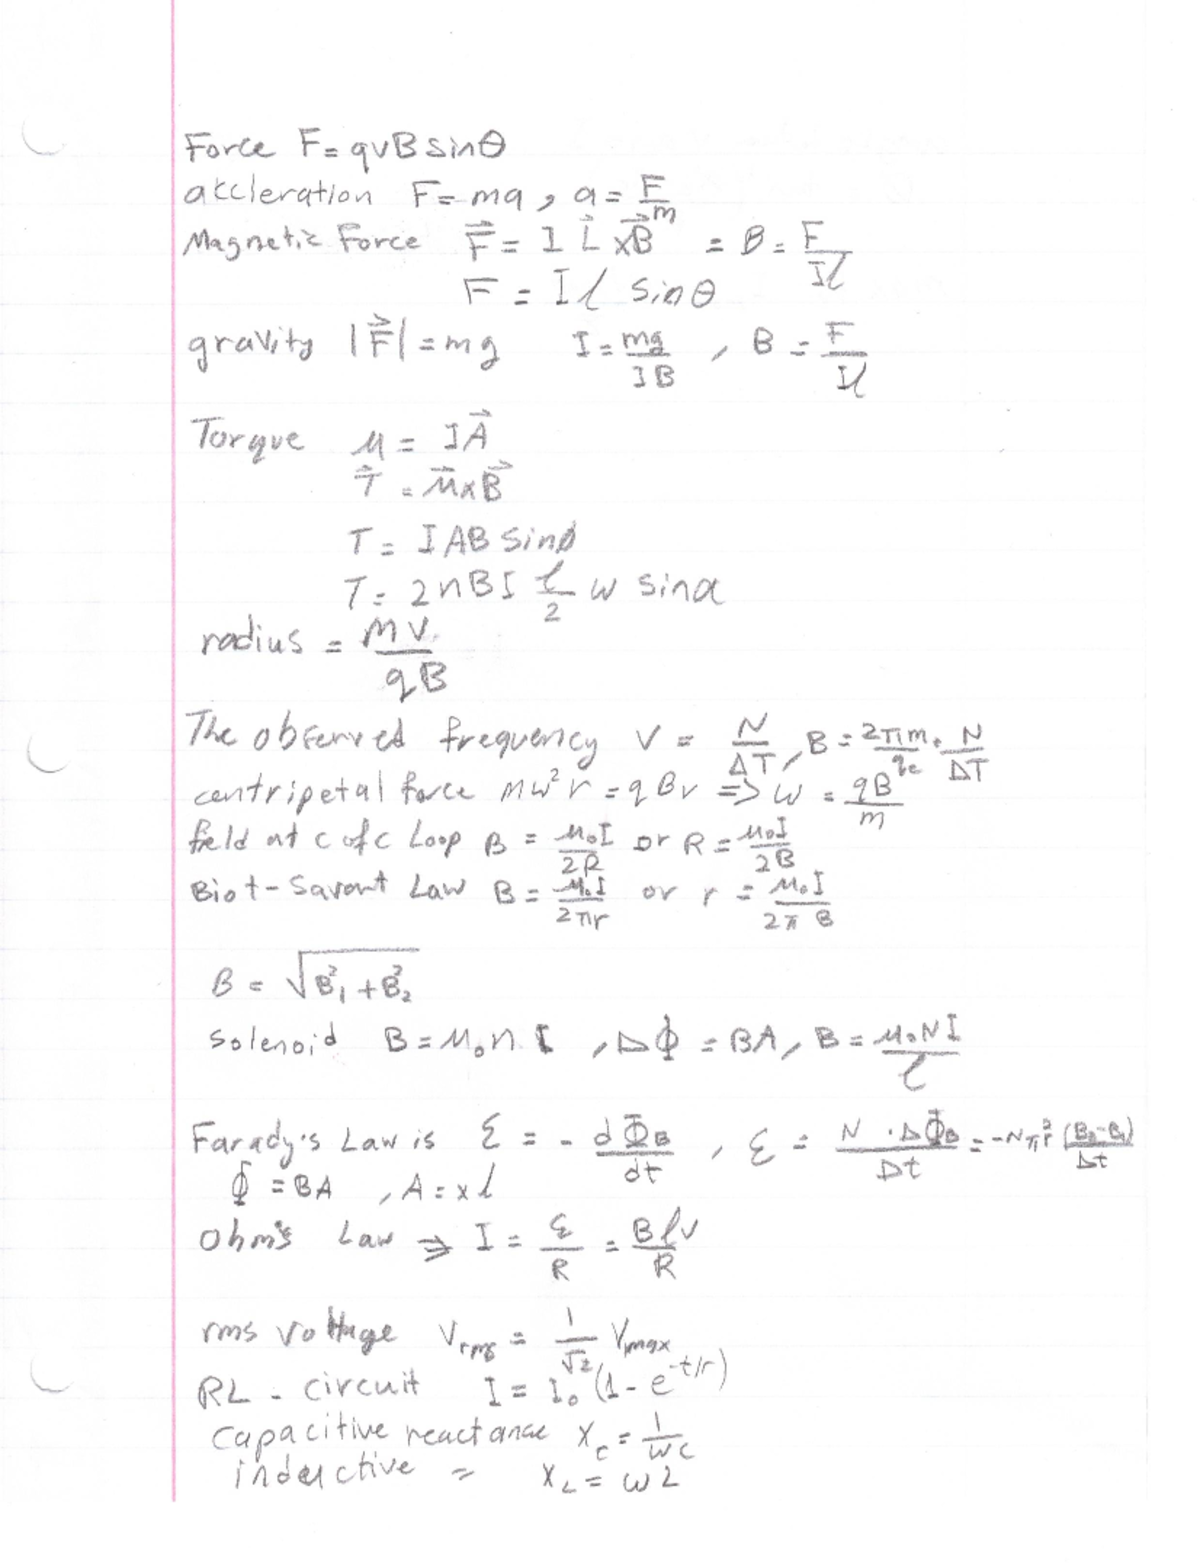 Force F= qvB sinθ
akcleration F= ma, a = F/m
Magnetic Force F⃗ = I L⃗ x B⃗ = B = F/Il
F = Il sinθ
gravity |F⃗| = mg I = mg/IB , B = F/Il
Torque μ = IA⃗
T⃗ = μ⃗xB⃗
T = IAB sinϕ
T = 2nBI l/2 w sinα
radius = mv/qB
The observed frequency V = N/ΔT, B = 2πm/qe · N/ΔT
centripetal force mw²r = qBv => w = qB/m
field at c of c Loop B = μ₀I/2R or R = μ₀I/2B
Biot-Savart Law B = μ₀I/2πr or r = μ₀I/2π B
B = √B₁² + B₂²
Solenoid B = μ₀n I , ΔΦ = BA, B = μ₀NI/l
Farady's Law is Ɛ = - dΦB/dt , Ɛ = N · ΔΦB/Δt = -Nπr² (B₂-B₁)/Δt
Φ = BA , A = xl
Ohm's Law => I = Ɛ/R = Blv/R
rms voltage Vrms = 1/√2 Vmax
RL - circuit I = I₀ (1 - e^-t/r)
Capacitive reactance Xc = 1/wc
inductive = XL = wL